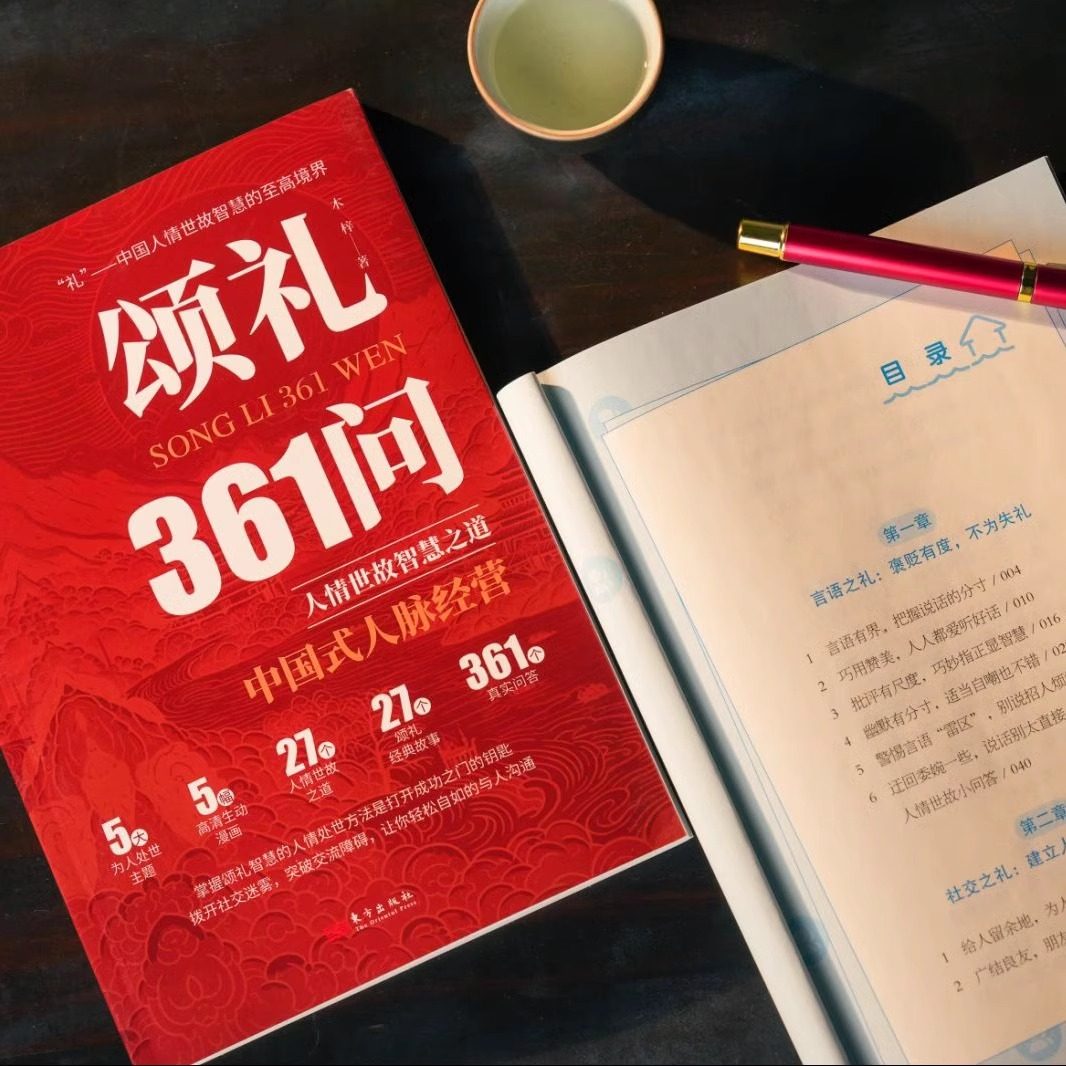 “礼”——中国人情世故智慧的至高境界
木梓—著
颂礼
SONG LI 361 WEN
361问
人情世故智慧之道
中国式人脉经营
5大
为人处世
主题
5幅
高清生动
漫画
27个
人情世故
之道
27个
颂礼
经典故事
361个
真实问答
掌握颂礼智慧的人情处世方法是打开成功之门的钥匙
拨开社交迷雾，突破交流障碍，让你轻松自如的与人沟通
東方出版社
The Oriental Press
目录
第一章
言语之礼：褒贬有度，不为失礼
1 言语有界，把握说话的分寸 / 004
2 巧用赞美，人人都爱听好话 / 010
3 批评有尺度，巧妙指正显智慧 / 016
4 幽默有分寸，适当自嘲也不错 / 02
5 警惕言语“雷区”，别说招人烦
6 迂回委婉一些，说话别太直接
人情世故小问答 / 040
第二章
社交之礼：建立
1 给人留余地，为人
2 广结良友，朋